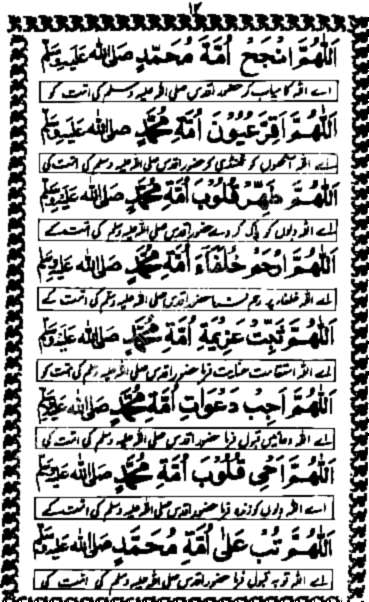 ۱۲
اَللّٰهُمَّ انْجَحْ اُمَّةَ مُحَمَّدٍ صَلَى الله عَلَيْهِ وَسَلَّم
اے اللہ کامیاب کر حضور اقدس صلی اللہ علیہ وسلم کی امت کو
اَللّٰهُمَّ اَقِرَّ عُيُوْنَ اُمَّةِ مُحَمَّدٍ صَلَى الله عَلَيْهِ وَسَلَّم
اے اللہ آنکھوں کو ٹھنڈی کر حضور اقدس صلی اللہ علیہ وسلم کی امت کی
اَللّٰهُمَّ طَهِّرْ قُلُوْبَ اُمَّةِ مُحَمَّدٍ صَلَى الله عَلَيْهِ وَسَلَّم
اے اللہ دلوں کو پاک کر دے حضور اقدس صلی اللہ علیہ وسلم کی امت کے
اَللّٰهُمَّ ارْحَمْ خُلَفَاءَ اُمَّةِ مُحَمَّدٍ صَلَى الله عَلَيْهِ وَسَلَّم
اے اللہ خلفاء پر رحم فرما حضور اقدس صلی اللہ علیہ وسلم کی امت کے
اَللّٰهُمَّ ثَبِّتْ عَزِيْمَةِ اُمَّةِ مُحَمَّدٍ صَلَى الله عَلَيْهِ وَسَلَّم
اے اللہ استقامت عنایت فرما حضور اقدس صلی اللہ علیہ وسلم کی امت کو
اَللّٰهُمَّ اَجِبْ دَعَوَاتِ اُمَّةِ مُحَمَّدٍ صَلَى الله عَلَيْهِ وَسَلَّم
اے اللہ دعائیں قبول فرما حضور اقدس صلی اللہ علیہ وسلم کی امت کی
اَللّٰهُمَّ اَحْيِ قُلُوْبَ اُمَّةِ مُحَمَّدٍ صَلَى الله عَلَيْهِ وَسَلَّم
اے اللہ دلوں کو زندہ فرما حضور اقدس صلی اللہ علیہ وسلم کی امت کے
اَللّٰهُمَّ تُبْ عَلٰى اُمَّةِ مُحَمَّدٍ صَلَى الله عَلَيْهِ وَسَلَّم
اے اللہ توبہ قبول فرما حضور اقدس صلی اللہ علیہ وسلم کی امت کی